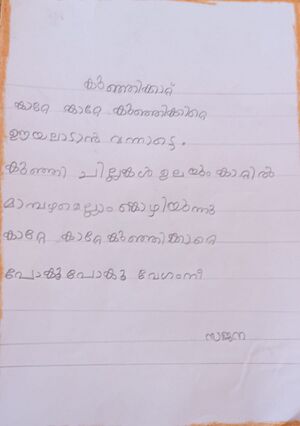 കുഞ്ഞിക്കാറ്റ്
കാറ്റേ കാറ്റേ കുഞ്ഞിക്കാറ്റേ
ഊയലാടാൻ വന്നാട്ടെ.
കുഞ്ഞി ചില്ലകൾ ഉലയും കാറ്റിൽ
മാമ്പഴമെല്ലാം കൊഴിയുന്നു
കാറ്റേ കാറ്റേ കുഞ്ഞിക്കാറ്റേ
പോകൂ പോകൂ വേഗംനീ
സജന